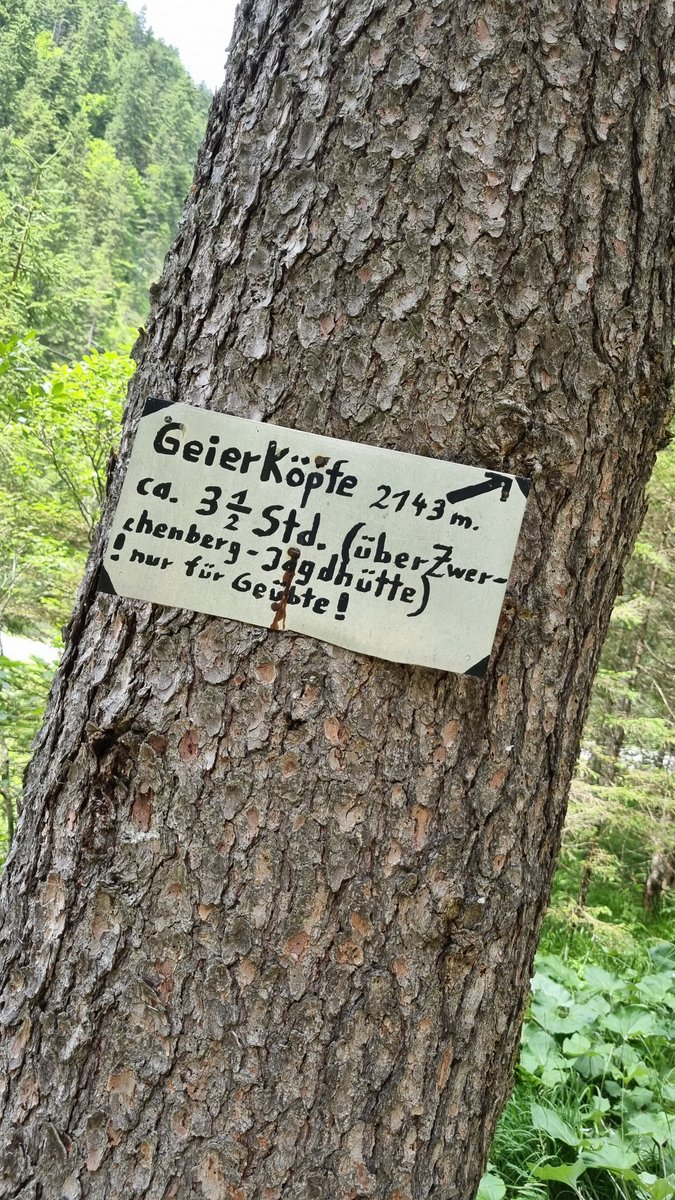 GeierKöpfe 2143 m.
ca. 3 1/2 Std. (über Zwer-
chenberg-Jagdhütte)
! nur für Geübte!